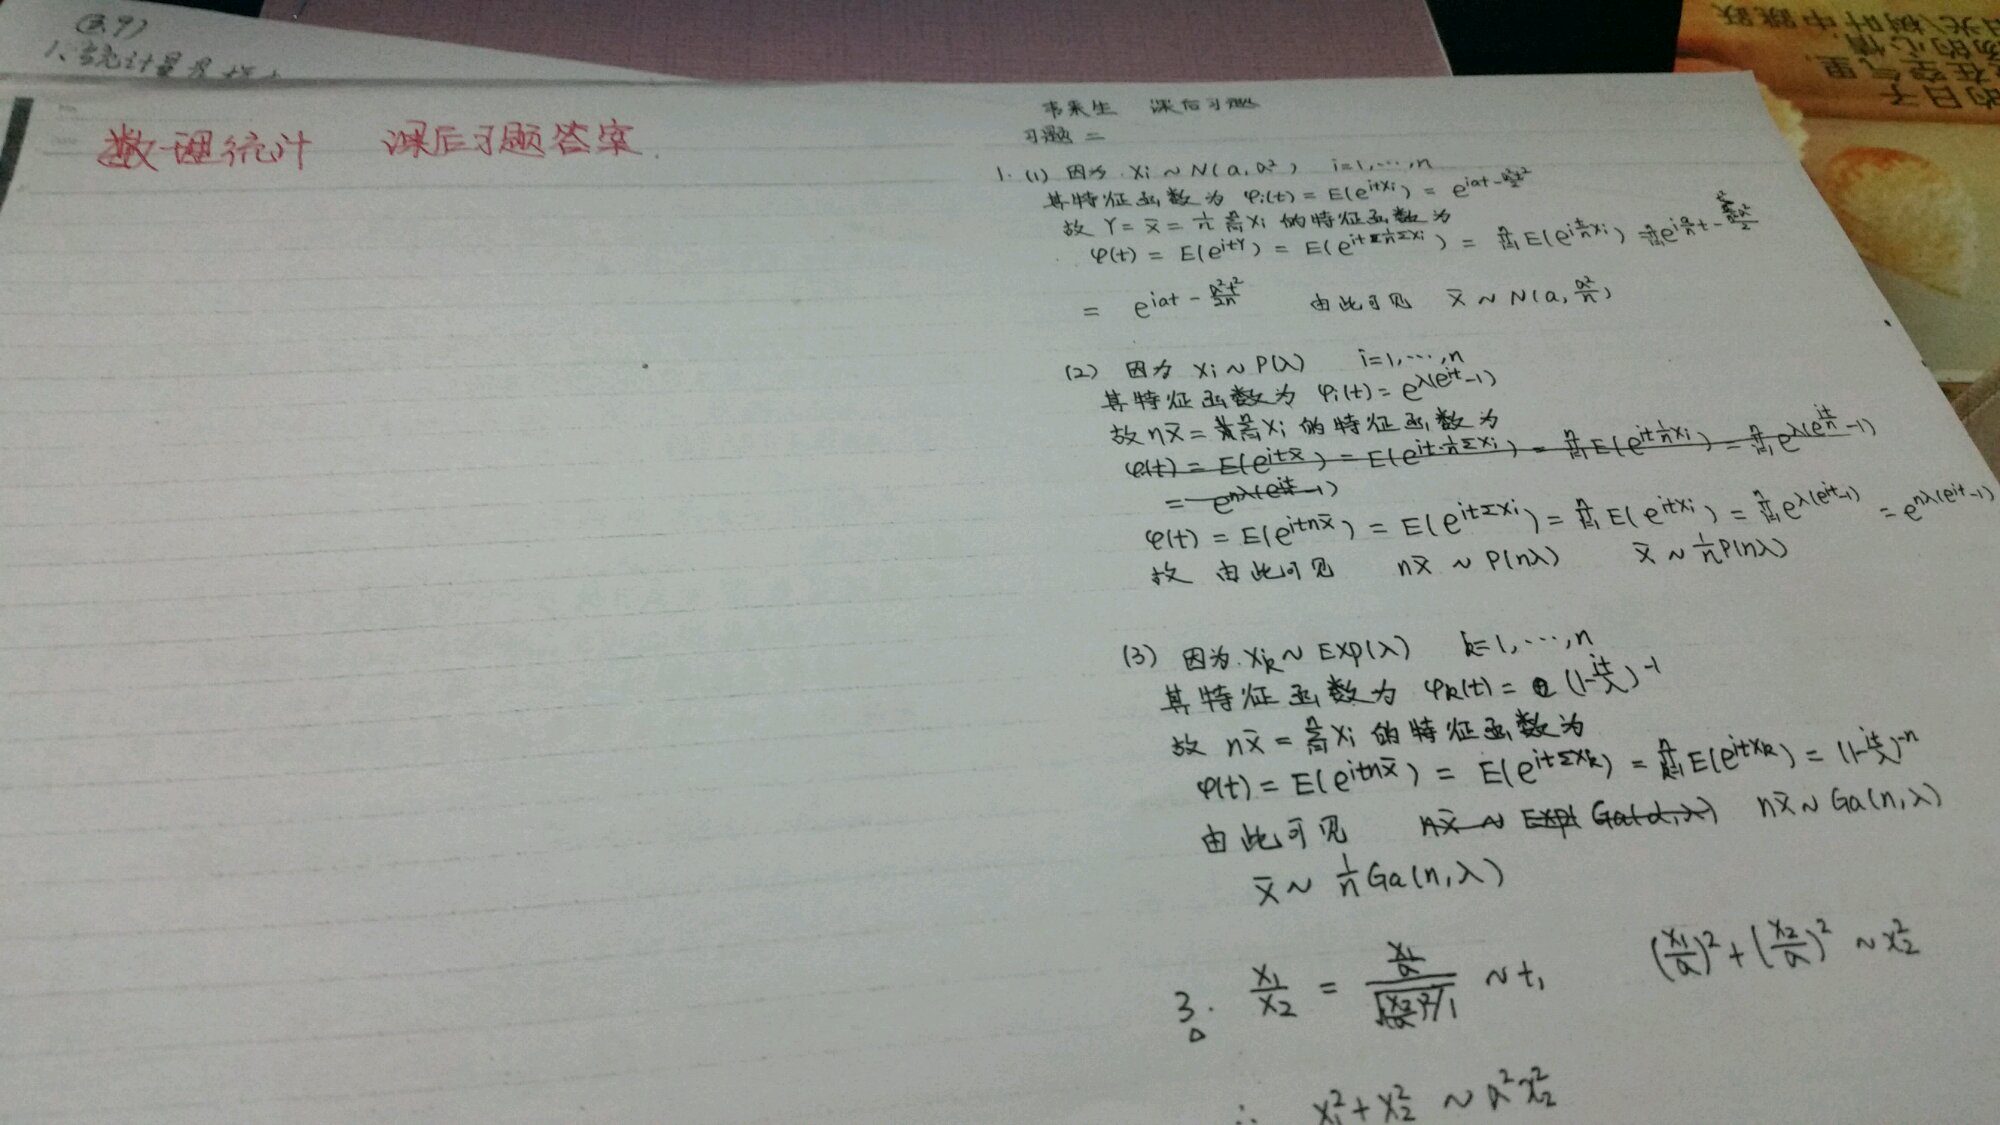 (3.9)
1、统计量是
数理统计 课后习题答案.
韦来生 课后习题
习题二
1. (1) 因为 Xi ~ N(a, a²) i=1,…,n
其特征函数为 φi(t) = E(e^{itXi}) = e^{iat - a²t²/2}
故 Y = x̄ = 1/n Σ_{i=1}^{n} Xi 的特征函数为
φ(t) = E(e^{itY}) = E(e^{it 1/n ΣXi}) = ∏_{i=1}^{n} E(e^{i t/n Xi})
= e^{iat - a²t²/2n} 由此可见 x̄ ~ N(a, a²/n)
(2) 因为 Xi ~ P(λ) i=1,…,n
其特征函数为 φi(t) = e^{λ(e^{it}-1)}
故 nx̄ = Σ_{i=1}^{n} Xi 的特征函数为
φ(t) = E(e^{itx̄}) = E(e^{it·1/n ΣXi}) = ∏_{i=1}^{n} E(e^{it 1/n Xi}) = ∏_{i=1}^{n} e^{λ(e^{it/n}-1)}
= e^{nλ(e^{it}-1)}
φ(t) = E(e^{itnx̄}) = E(e^{itΣXi}) = ∏_{i=1}^{n} E(e^{itXi}) = ∏_{i=1}^{n} e^{λ(e^{it}-1)} = e^{nλ(e^{it}-1)}
故 由此可见 nx̄ ~ P(nλ) x̄ ~ 1/n P(nλ)
(3) 因为 Xk ~ Exp(λ) k=1,…,n
其特征函数为 φk(t) = (1-it/λ)^{-1}
故 nx̄ = Σ_{i=1}^{n} Xi 的特征函数为
φ(t) = E(e^{itnx̄}) = E(e^{itΣXk}) = ∏_{k=1}^{n} E(e^{itXk}) = (1-it/λ)^{-n}
由此可见 nx̄ ~ Exp( Ga(α,λ) nx̄ ~ Ga(n,λ)
x̄ ~ 1/n Ga(n,λ)
3. X1/X2 = (X1/a)/√((X2/a)²/1) ~ t₁ (X1/a)² + (X2/a)² ~ χ²₂
∴ X₁² + X₂² ~ a²χ²₂
的日子
在空气里
的心情
中跳跃